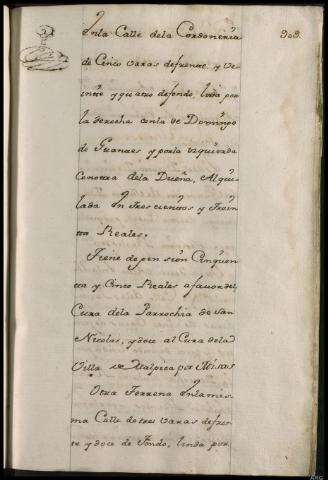 303.
Enla Calle dela Cordoneria
de Cinco varas defrente, y ve
inte y quatro defondo, linda por
la derecha conla de Domingo
de Guanaes y porla izquierda
conotra dela Dueña, Alqui
lada En trescientos y trein
ta Reales.
Tiene de pension Cinquen
ta y Cinco Reales afavor del
Cura dela Parrochia de San
Nicolas, y doce al Cura dela
Villa de Malpica por Misas
Otra Terrena Enlamis
ma Calle de tres varas defren
te y doce de fondo, linda por